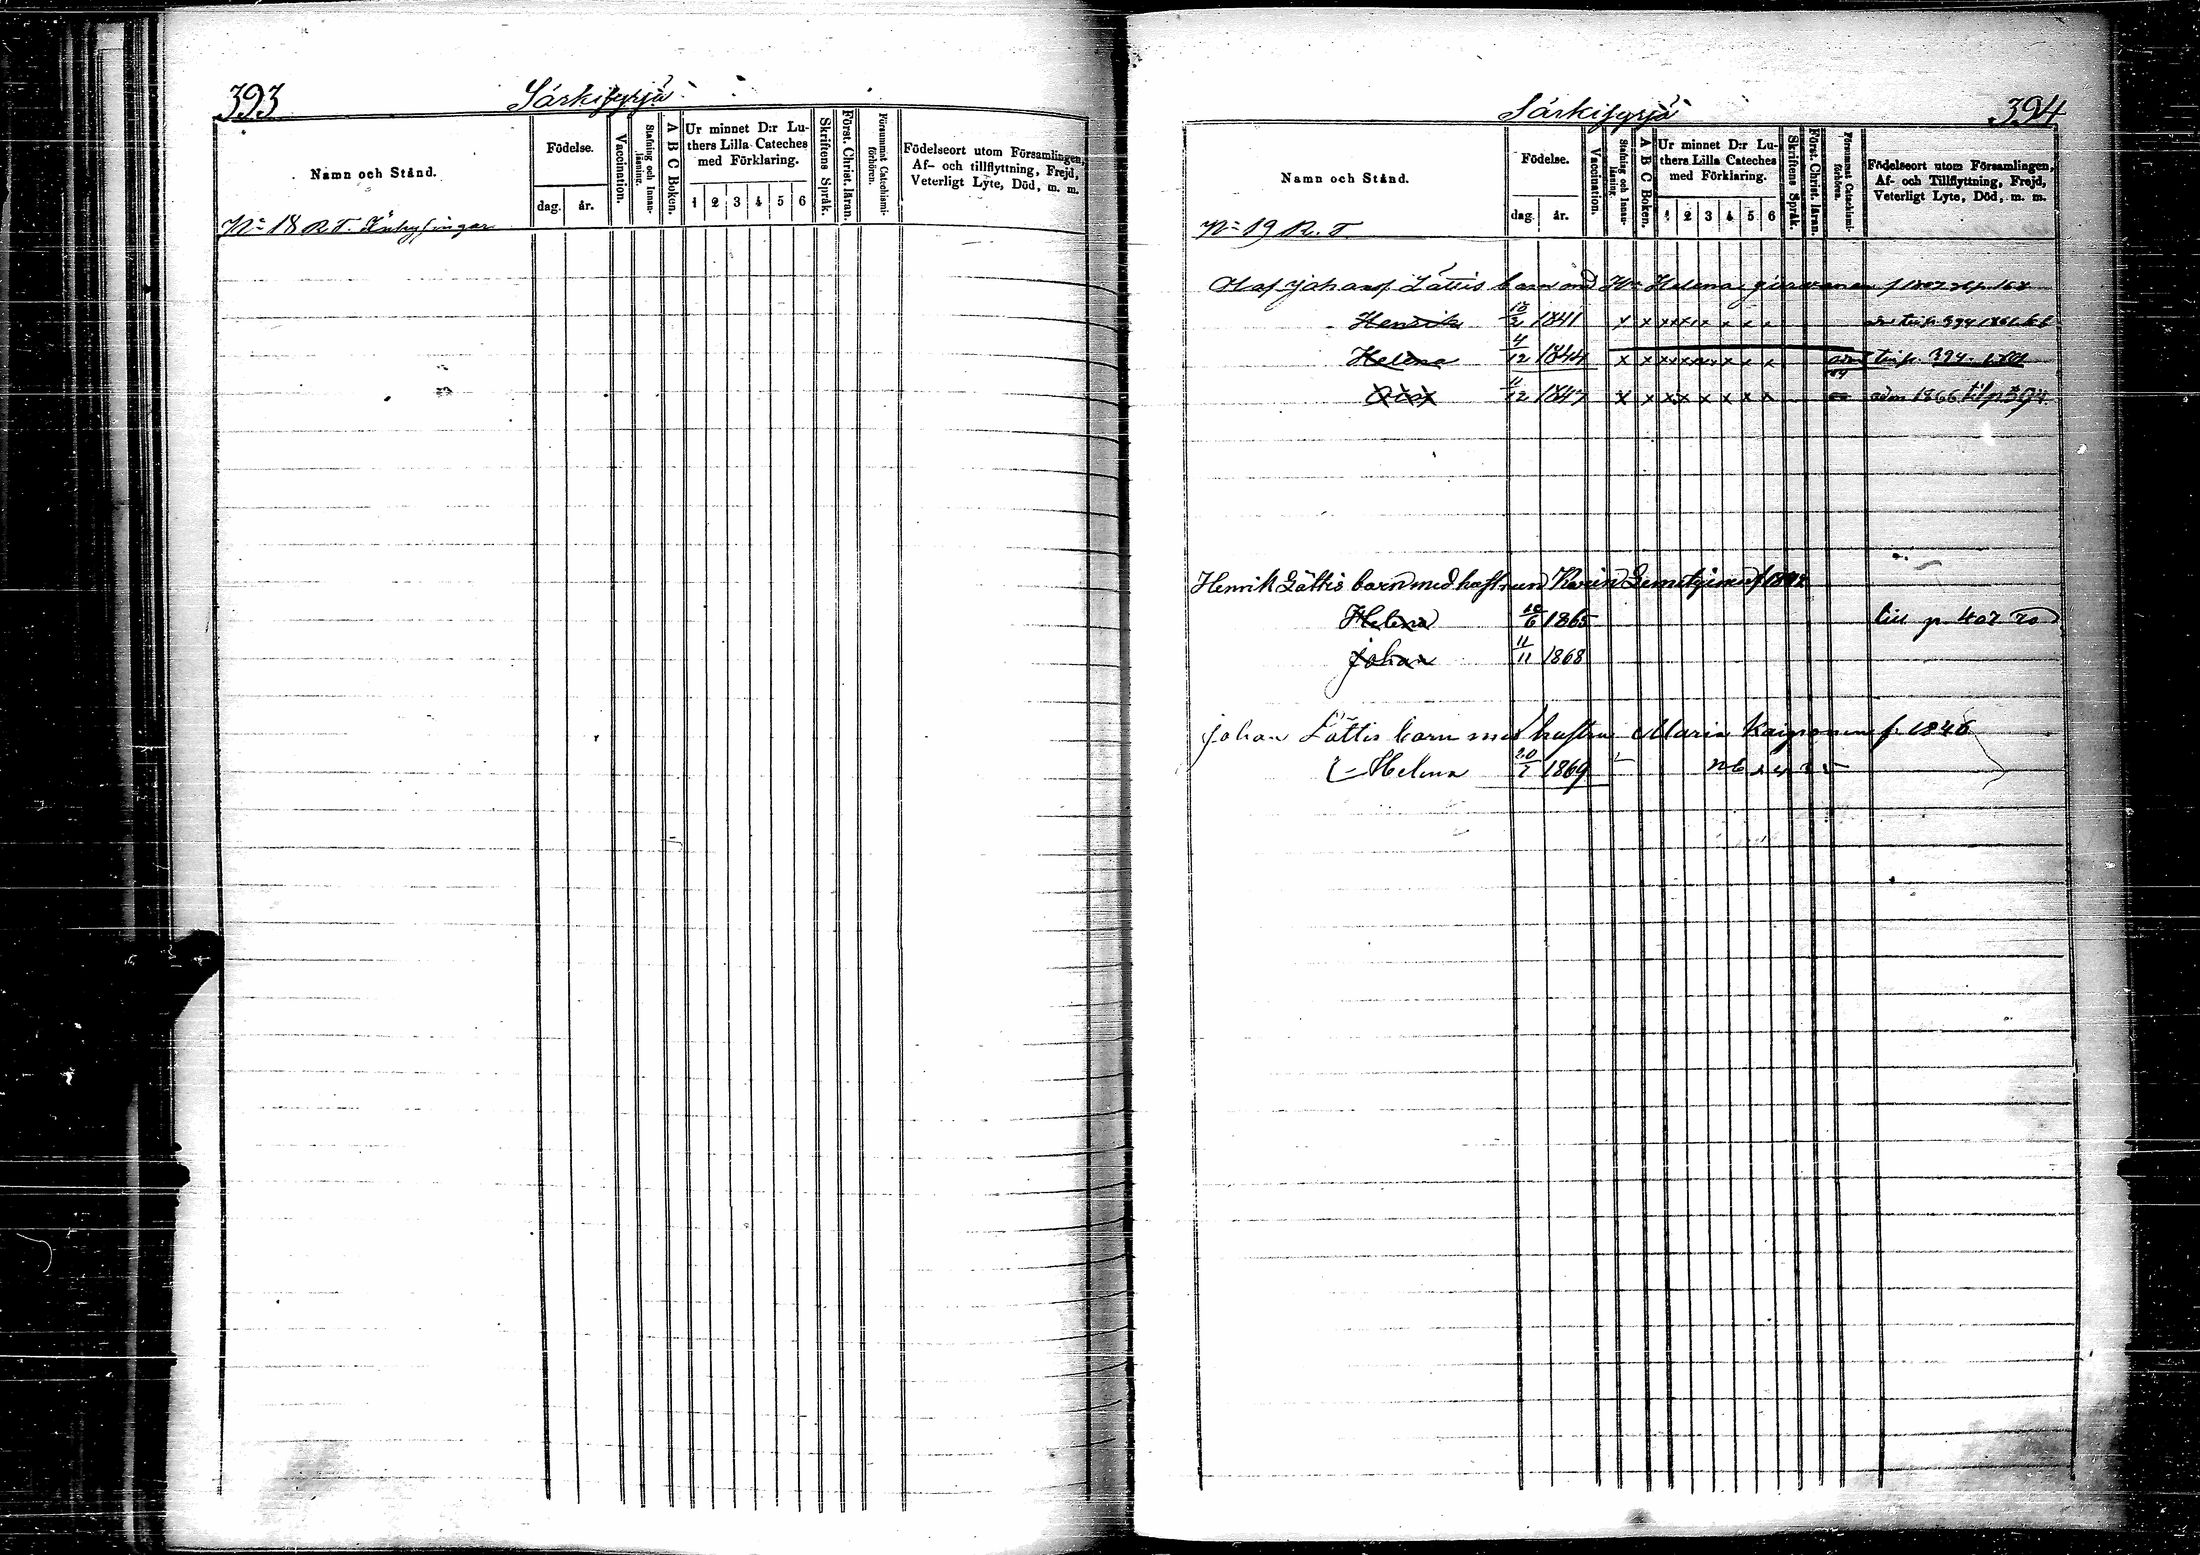 393
Särkisyrjä
Namn och Stånd.
Födelse.
dag. år.
Vaccination.
Stafning och Innanläsning.
A B C Boken.
Ur minnet D:r Lu-
thers Lilla Cateches
med Förklaring.
1 2 3 4 5 6
Skriftens Språk.
Först. Christ. läran.
Försummat Catechismi-
förhören.
Födelseort utom Församlingen,
Af- och tillflyttning, Frejd,
Veterligt Lyte, Död, m. m.
No 18 R. T.
394
Särkisyrjä
Namn och Stånd.
Födelse.
dag. år.
Vaccination.
Stafning och Innanläsning.
A B C Boken.
Ur minnet D:r Lu-
thers Lilla Cateches
med Förklaring.
1 2 3 4 5 6
Skriftens Språk.
Först. Christ. läran.
Försummat Catechismi-
förhören.
Födelseort utom Församlingen,
Af- och Tillflyttning, Frejd,
Veterligt Lyte, Död, m. m.
No 19 R. T.
Olaf Johanss. Lättis barn Helena
Henrik 1841 x x x x x x x x x
Helena 4/12 1844 x x x x x x x x x 394
11/12 1847 x x x x x x x x x adm 1866 394
Henrik Lättis barn med hustrun Karin
Helena 10/6 1865 p 407
Johan 11/11 1868
Johan Lättis barn med hustru Maria f. 1846
Helena 20/2 1869